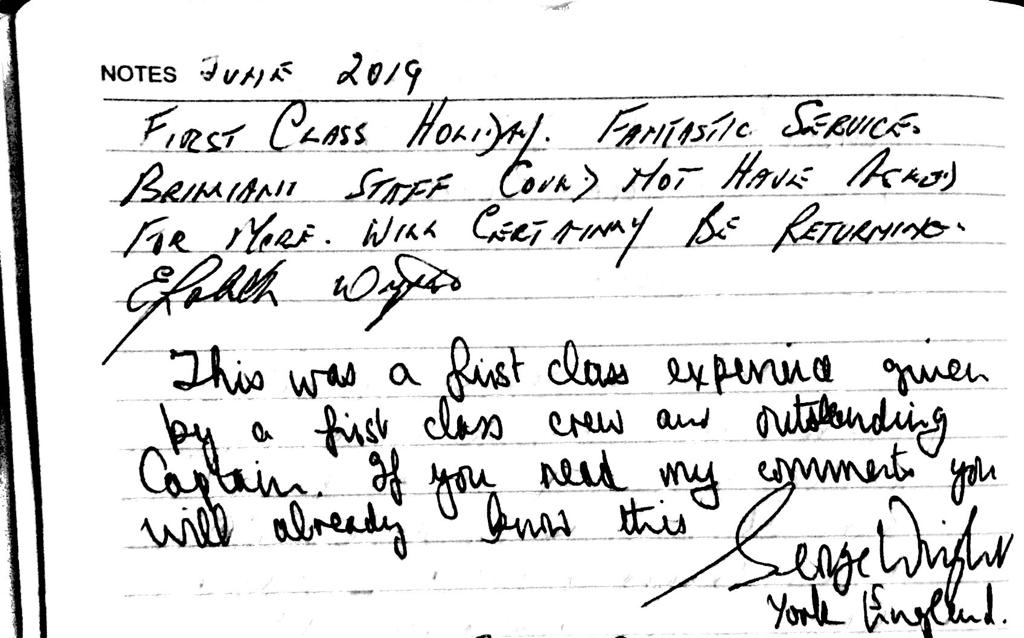 NOTES JUNE 2019
FIRST CLASS HOLIDAY. FANTASTIC SERVICE.
BRILLIANT STAFF COULD NOT HAVE ASKED
FOR MORE. WILL CERTAINLY BE RETURNING.
This was a first class experience given
by a first class crew and outstanding
Captain. If you read my comments you
will already know this
George Wright
York England.